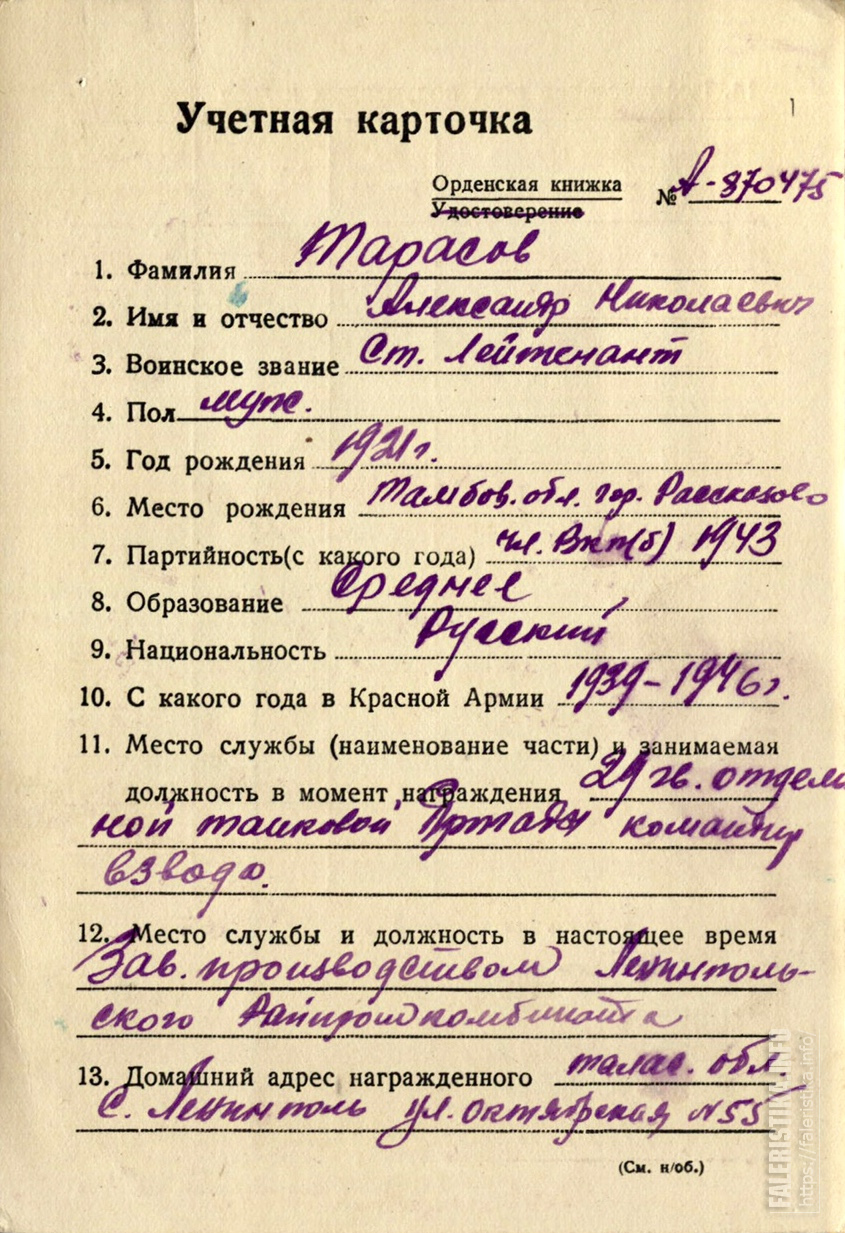 1
Учетная карточка
Орденская книжка № А-870475
Удостоверение
1. Фамилия Тарасов
2. Имя и отчество Александр Николаевич
3. Воинское звание Ст. Лейтенант
4. Пол муж.
5. Год рождения 1921 г.
6. Место рождения Тамбов. обл. гор. Рассказово
7. Партийность(с какого года) чл. ВКП(б) 1943
8. Образование Среднее
9. Национальность Русский
10. С какого года в Красной Армии 1939-1946 г.
11. Место службы (наименование части) и занимаемая
должность в момент награждения 29 гв. отдель
ной танковой командир
взвода.
12. Место службы и должность в настоящее время
Зав. производством Ленинполь-
ского Райпромкомбината
13. Домашний адрес награжденного талас. обл.
с. Ленинполь ул. Октябрская N 55
(См. н/об.)
FALERISTIKA.INFO
https://faleristika.info